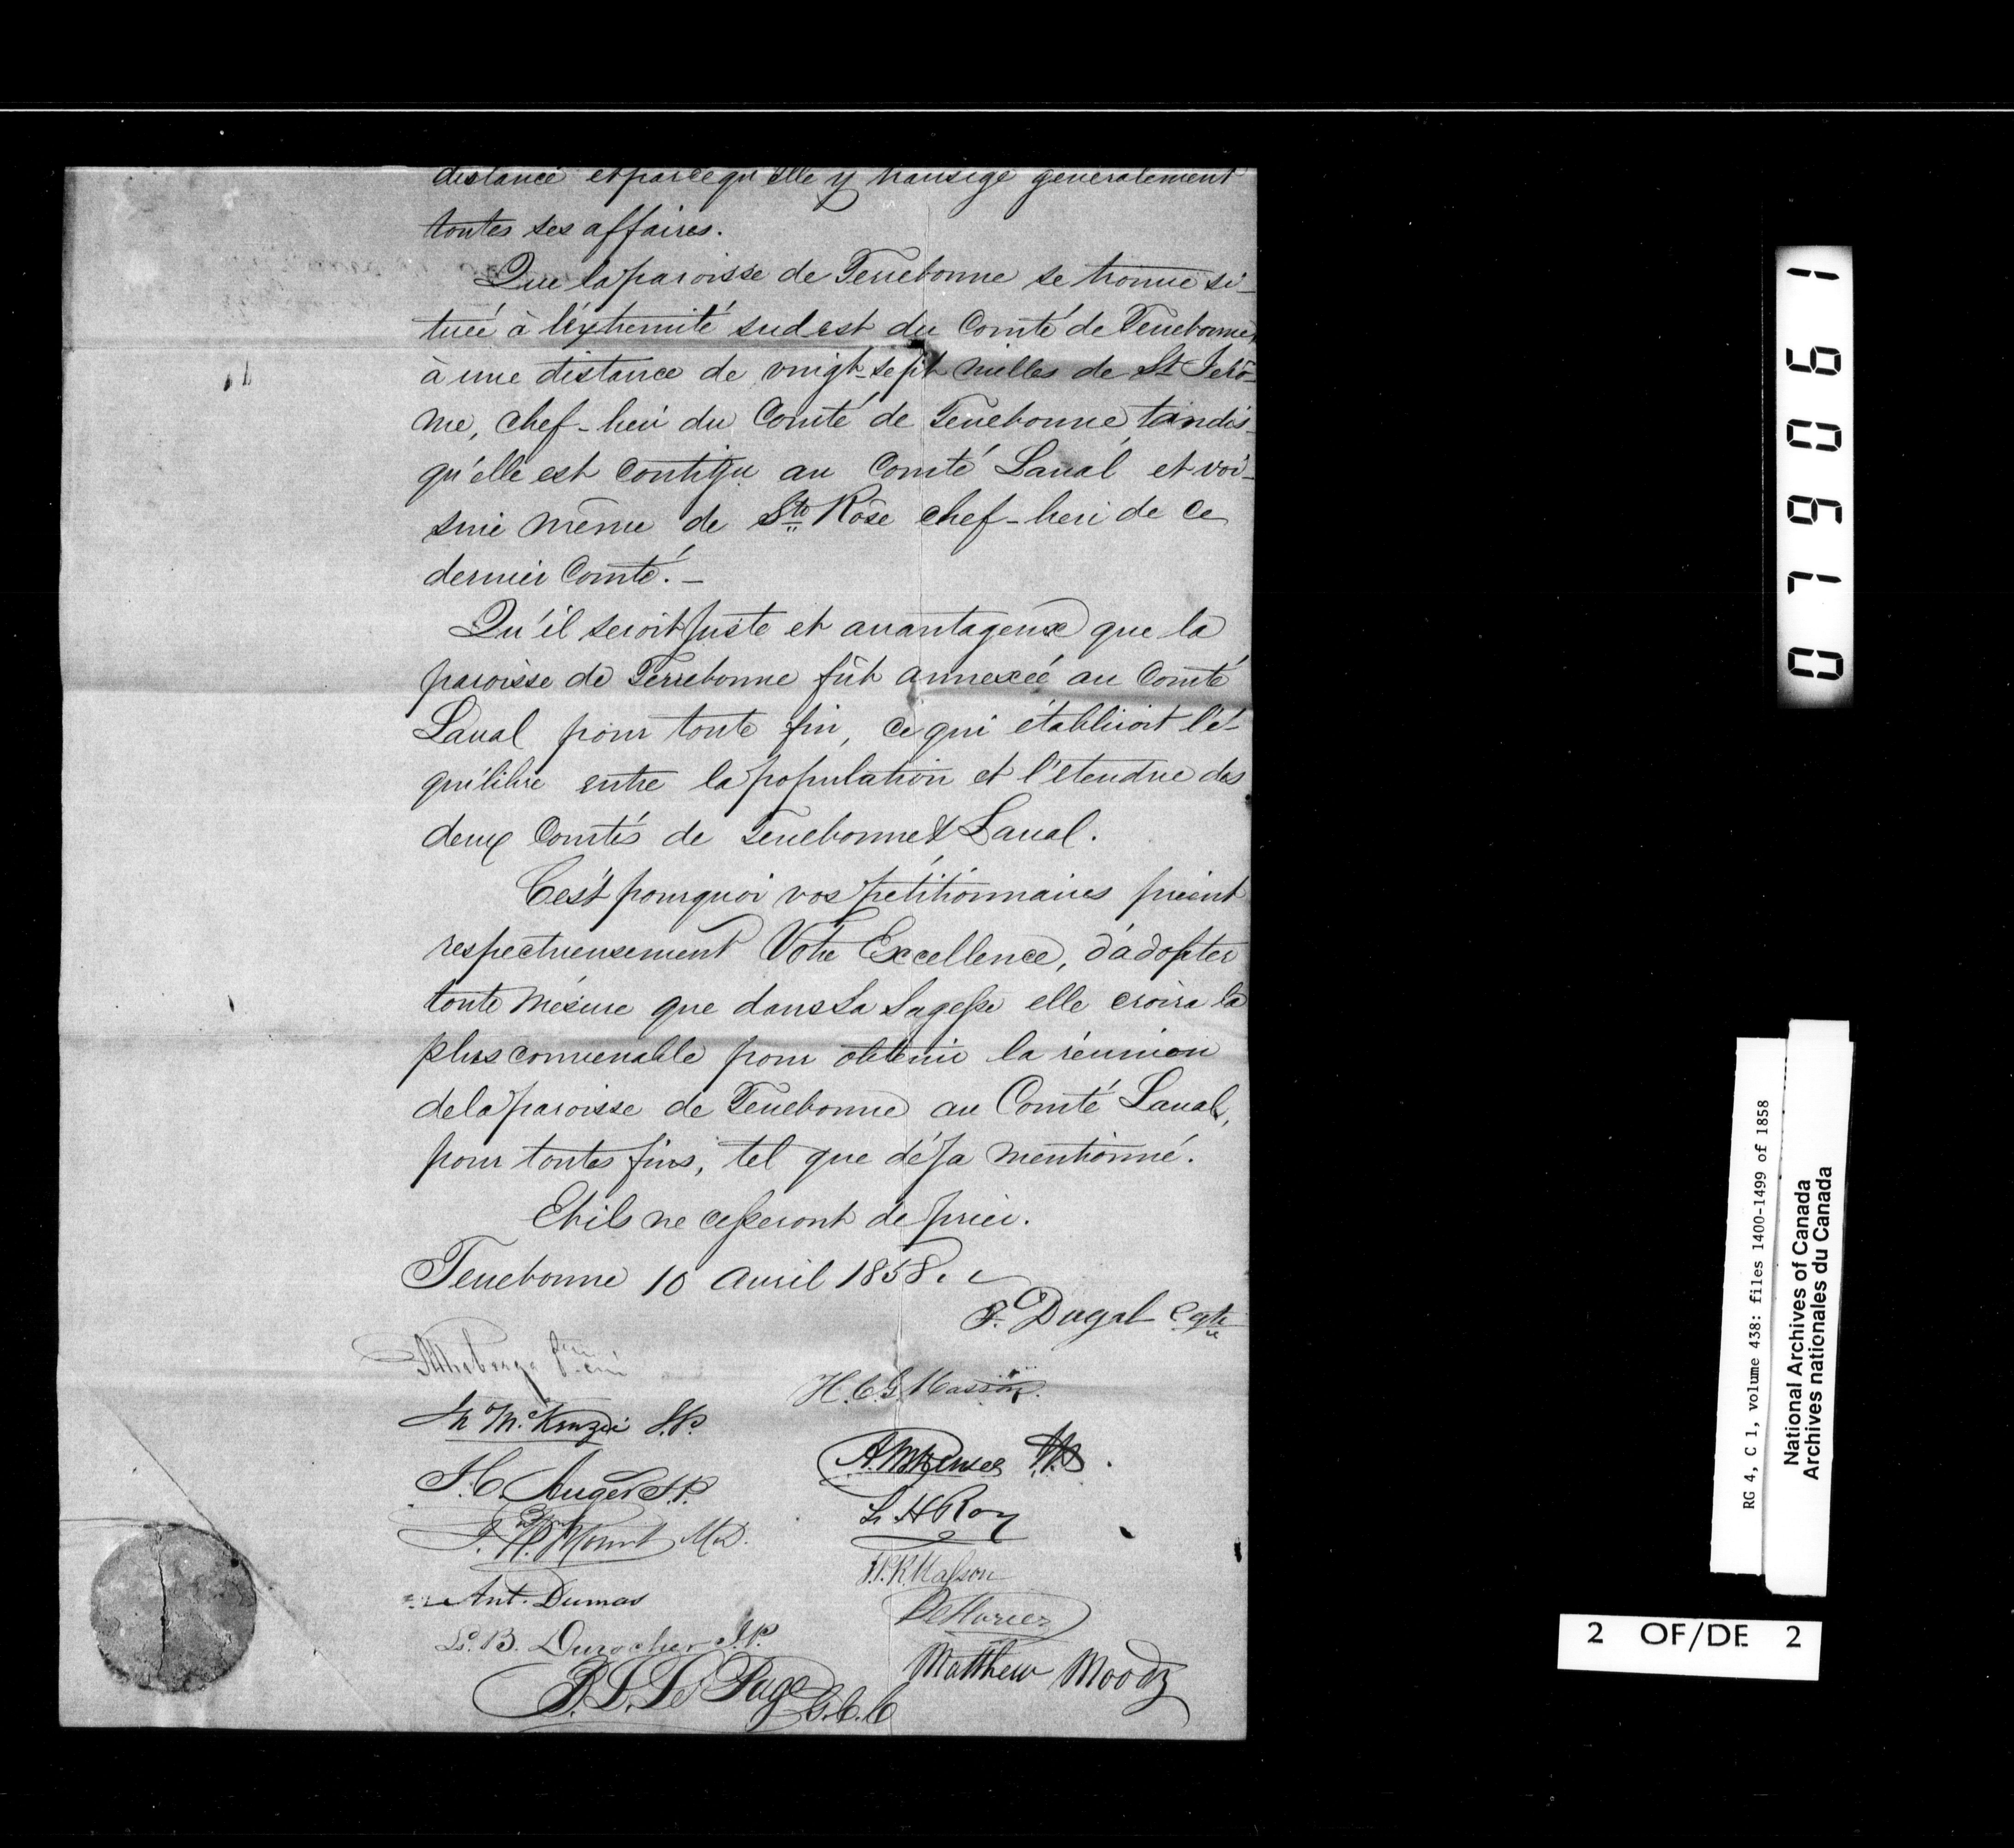 distance et parcequ'elle y transige généralement
toutes ses affaires.
Que la paroisse de Terrebonne se trouve si-
tuée à l'éxtremité sud est du Comté de Terrebonne,
à une distance de vingt-sept milles de St Jerô-
me, chef-lieu du Comté de Terrebonne, tandis-
qu'elle est contigu au Comté Laval et voi-
sine même de Ste Rose chef-lieu de ce
dernier Comté. -
Qu'il seroit juste et avantageux que la
paroisse de Terrebonne fût annexée au Comté
Laval pour toute fin, ce qui établiroit l'é-
quilibre entre la population et l'étendue des
deux Comtés de Terrebonne & Laval.
C'est pourquoi vos pétitionnaires prient
respectueusement Votre Excellence, d'adopter
toute mésure que dans sa sagesse elle croira la
plus convenable pour obtenir la réunion
de la paroisse de Terrebonne au Comté Laval,
pour toutes fins, tel que déja mentionné.
Et ils ne cesseront de prier.
Terrebonne 10 Avril 1858.
F. Dugal
H. C. G. Masson.
McKenzie J.P.
J. C. Auger J.P.
L H Roy
Mount M.D.
Masson
Ant. Dumas
Ls. B. Durocher J.P.
Matthew Moody
Page G.C.C
079061
RG 4, C 1, volume 438: files 1400-1499 of 1858
National Archives of Canada
Archives nationales du Canada
2 OF/DE 2